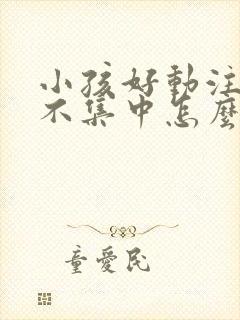 小孩好動注
不集中怎麼
童愛民